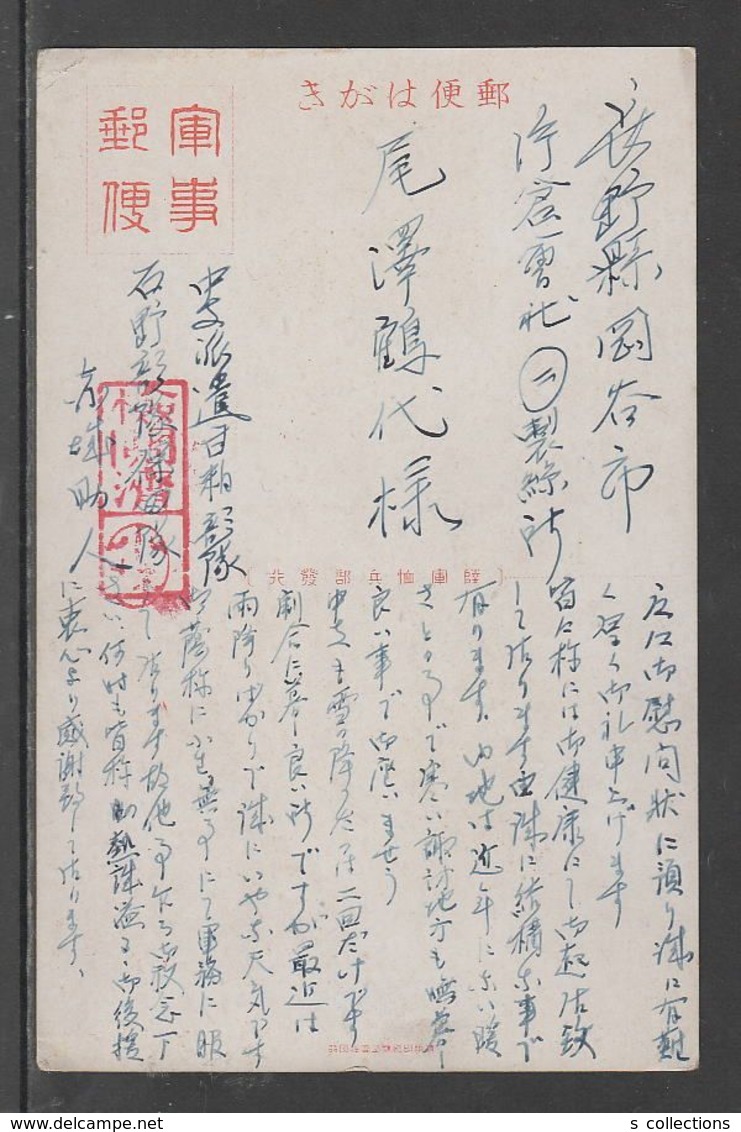 郵便はがき
軍事
郵便
長野縣岡谷市
片倉會社㊁製絲所
尾澤鶴代様
中支派遣甘粕部隊
石野部隊 隊
助人
(陸軍恤兵部發行)
に御慰問状に預り誠に有難
く厚く御礼申上げます
皆々様には御健康にて御起居致
して居ります由誠に結構な事で
有ります、内地は近年にない暖
さとの事で寒い諏訪地方も暮
良い事で御座いませう
中支も雪の降つたのは二回だけです
割合に暮良い所ですが最近は
雨降りばかりで誠にいやな天気です
御蔭様に小生無事にて軍務に服
して居ります故他事乍ら御放念下
さい、何時も皆様の熱誠溢る御後援
に衷心より感謝致して居ります、
s collections